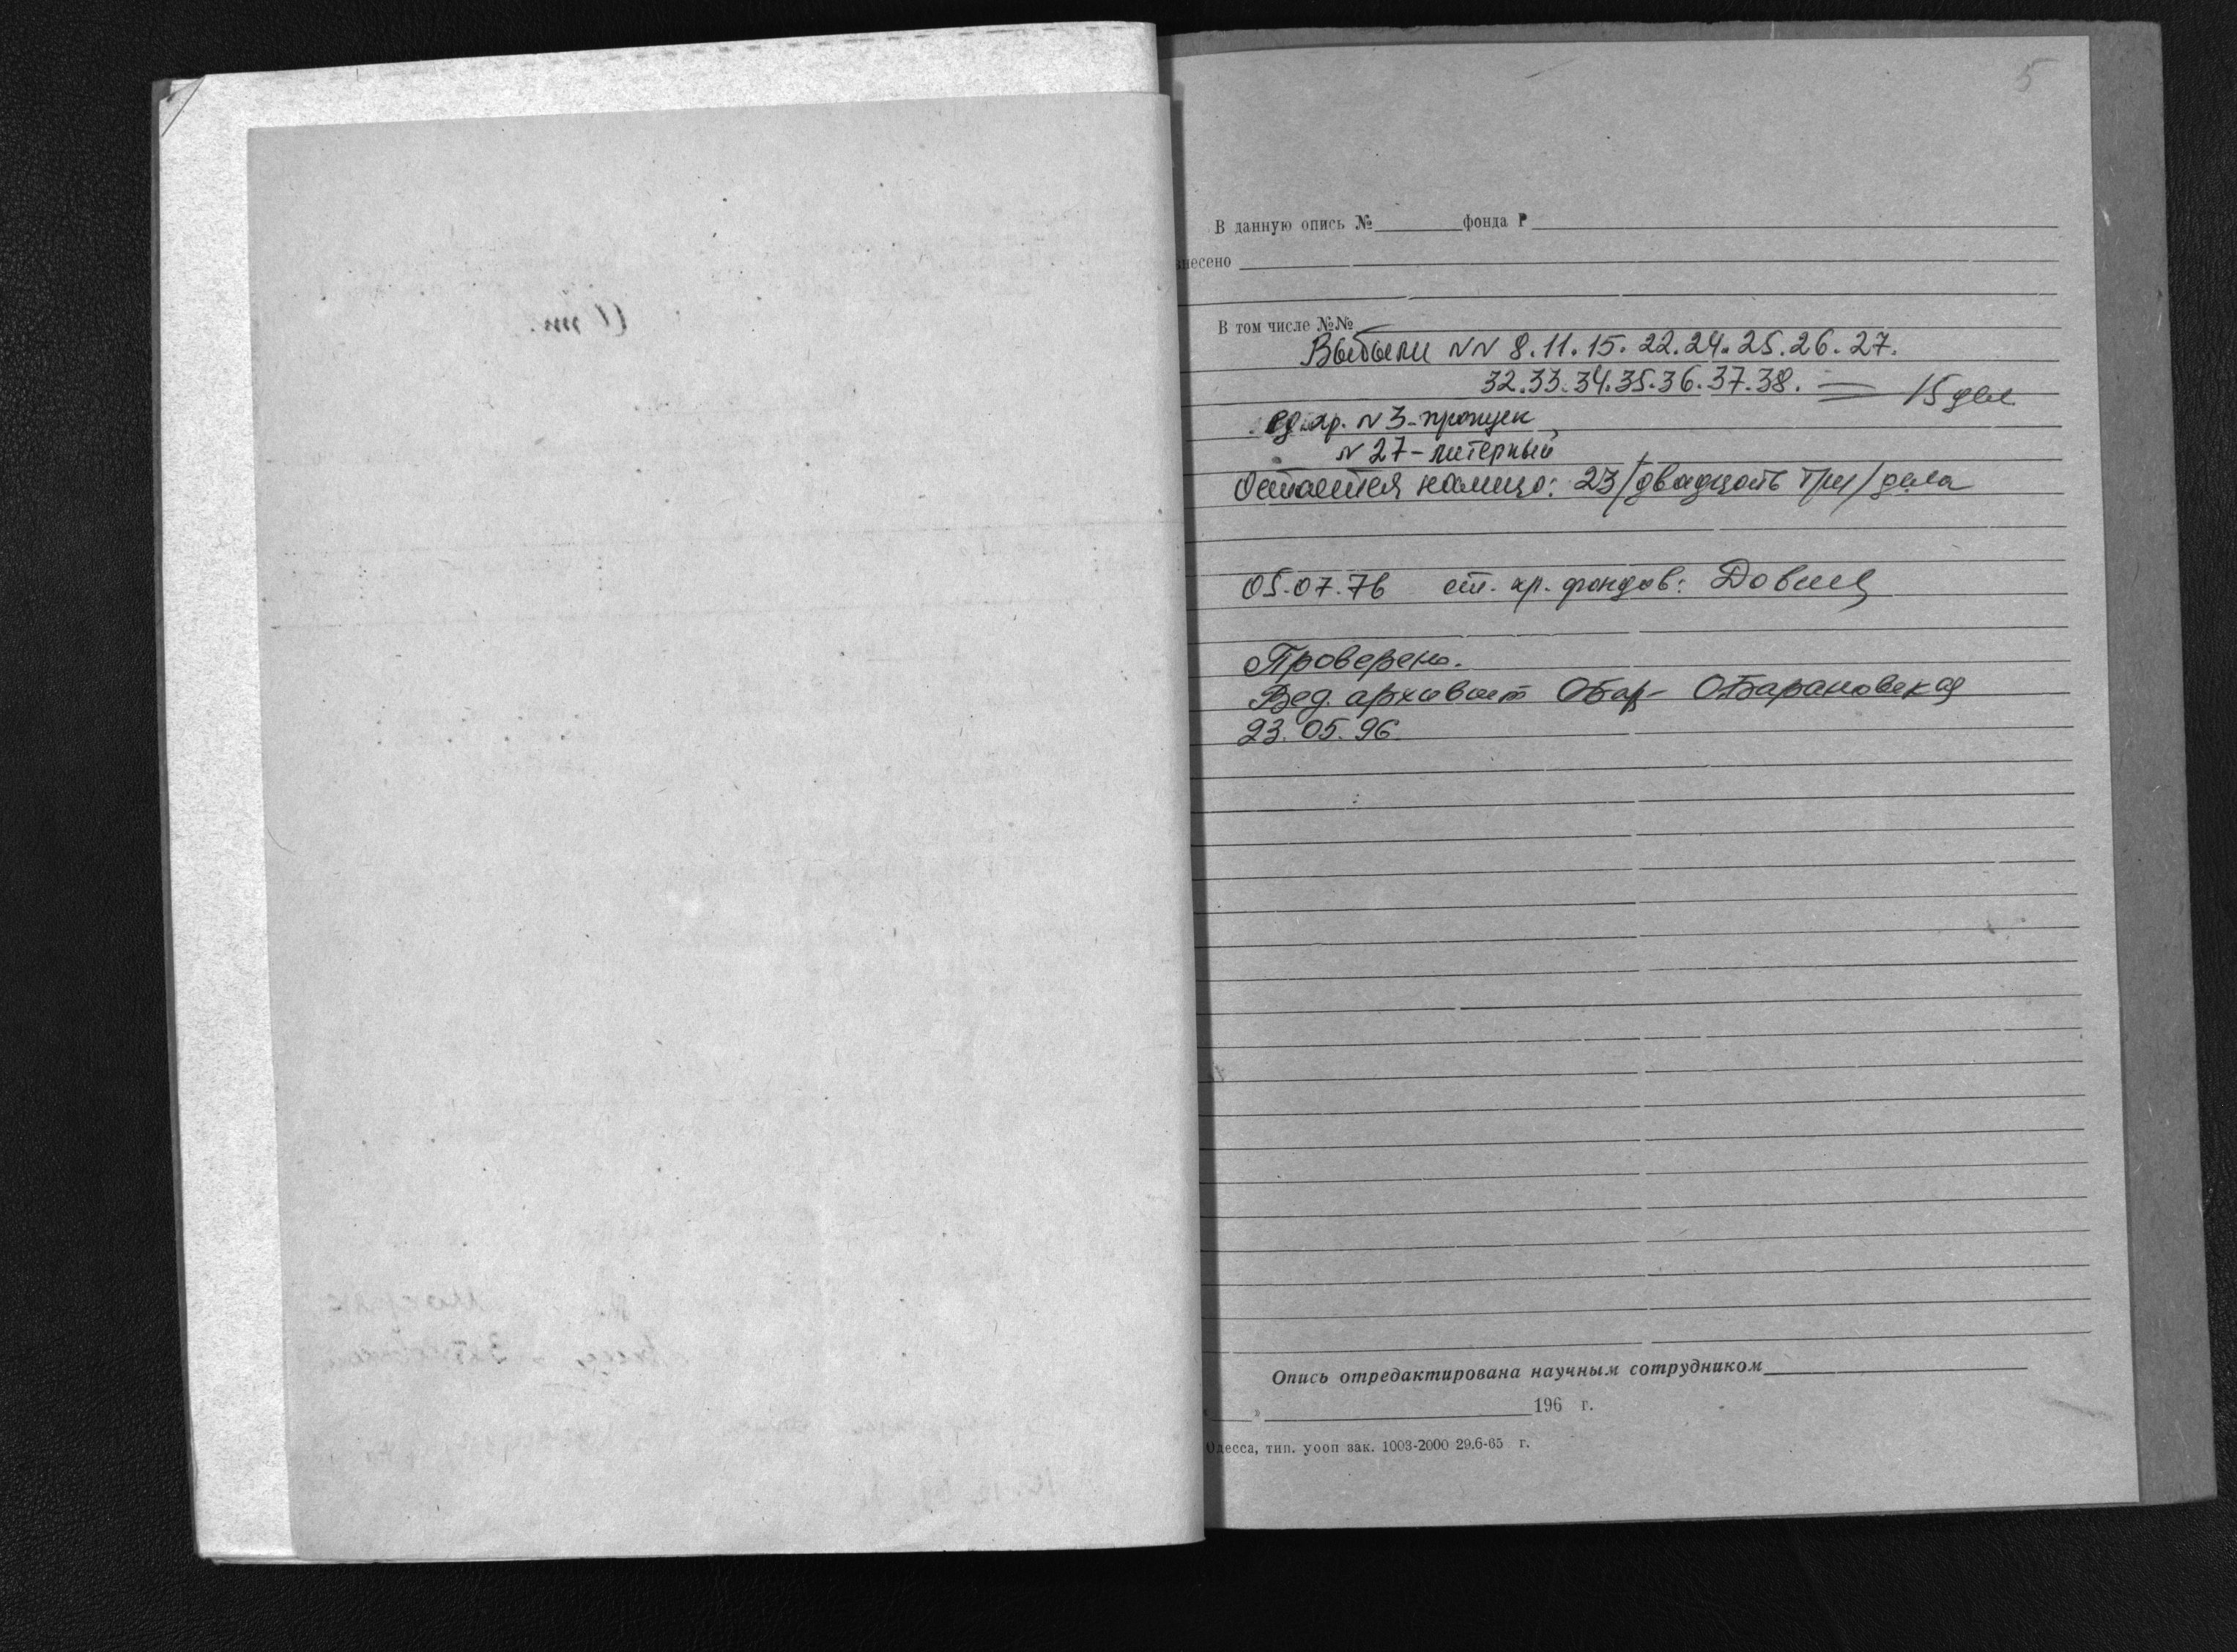 5
В данную опись № фонда Р
внесено
В том числе №№
Выбыли NN 8.11.15.22.24.25.26.27.
32.33.34.35.36.37.38. — 15 дел
ед. хр. N 3 - пропуск
N 27 - литерный
Остается налицо: 23 /двадцать три/ дела
05.07.76 ст. хр. фондов:
Проверено.
Вед. архивист ОБар- О.Барановская
23.05.96.
Опись отредактирована научным сотрудником
« » 196 г.
Одесса, тип. уооп зак. 1003-2000 29.6-65 г.